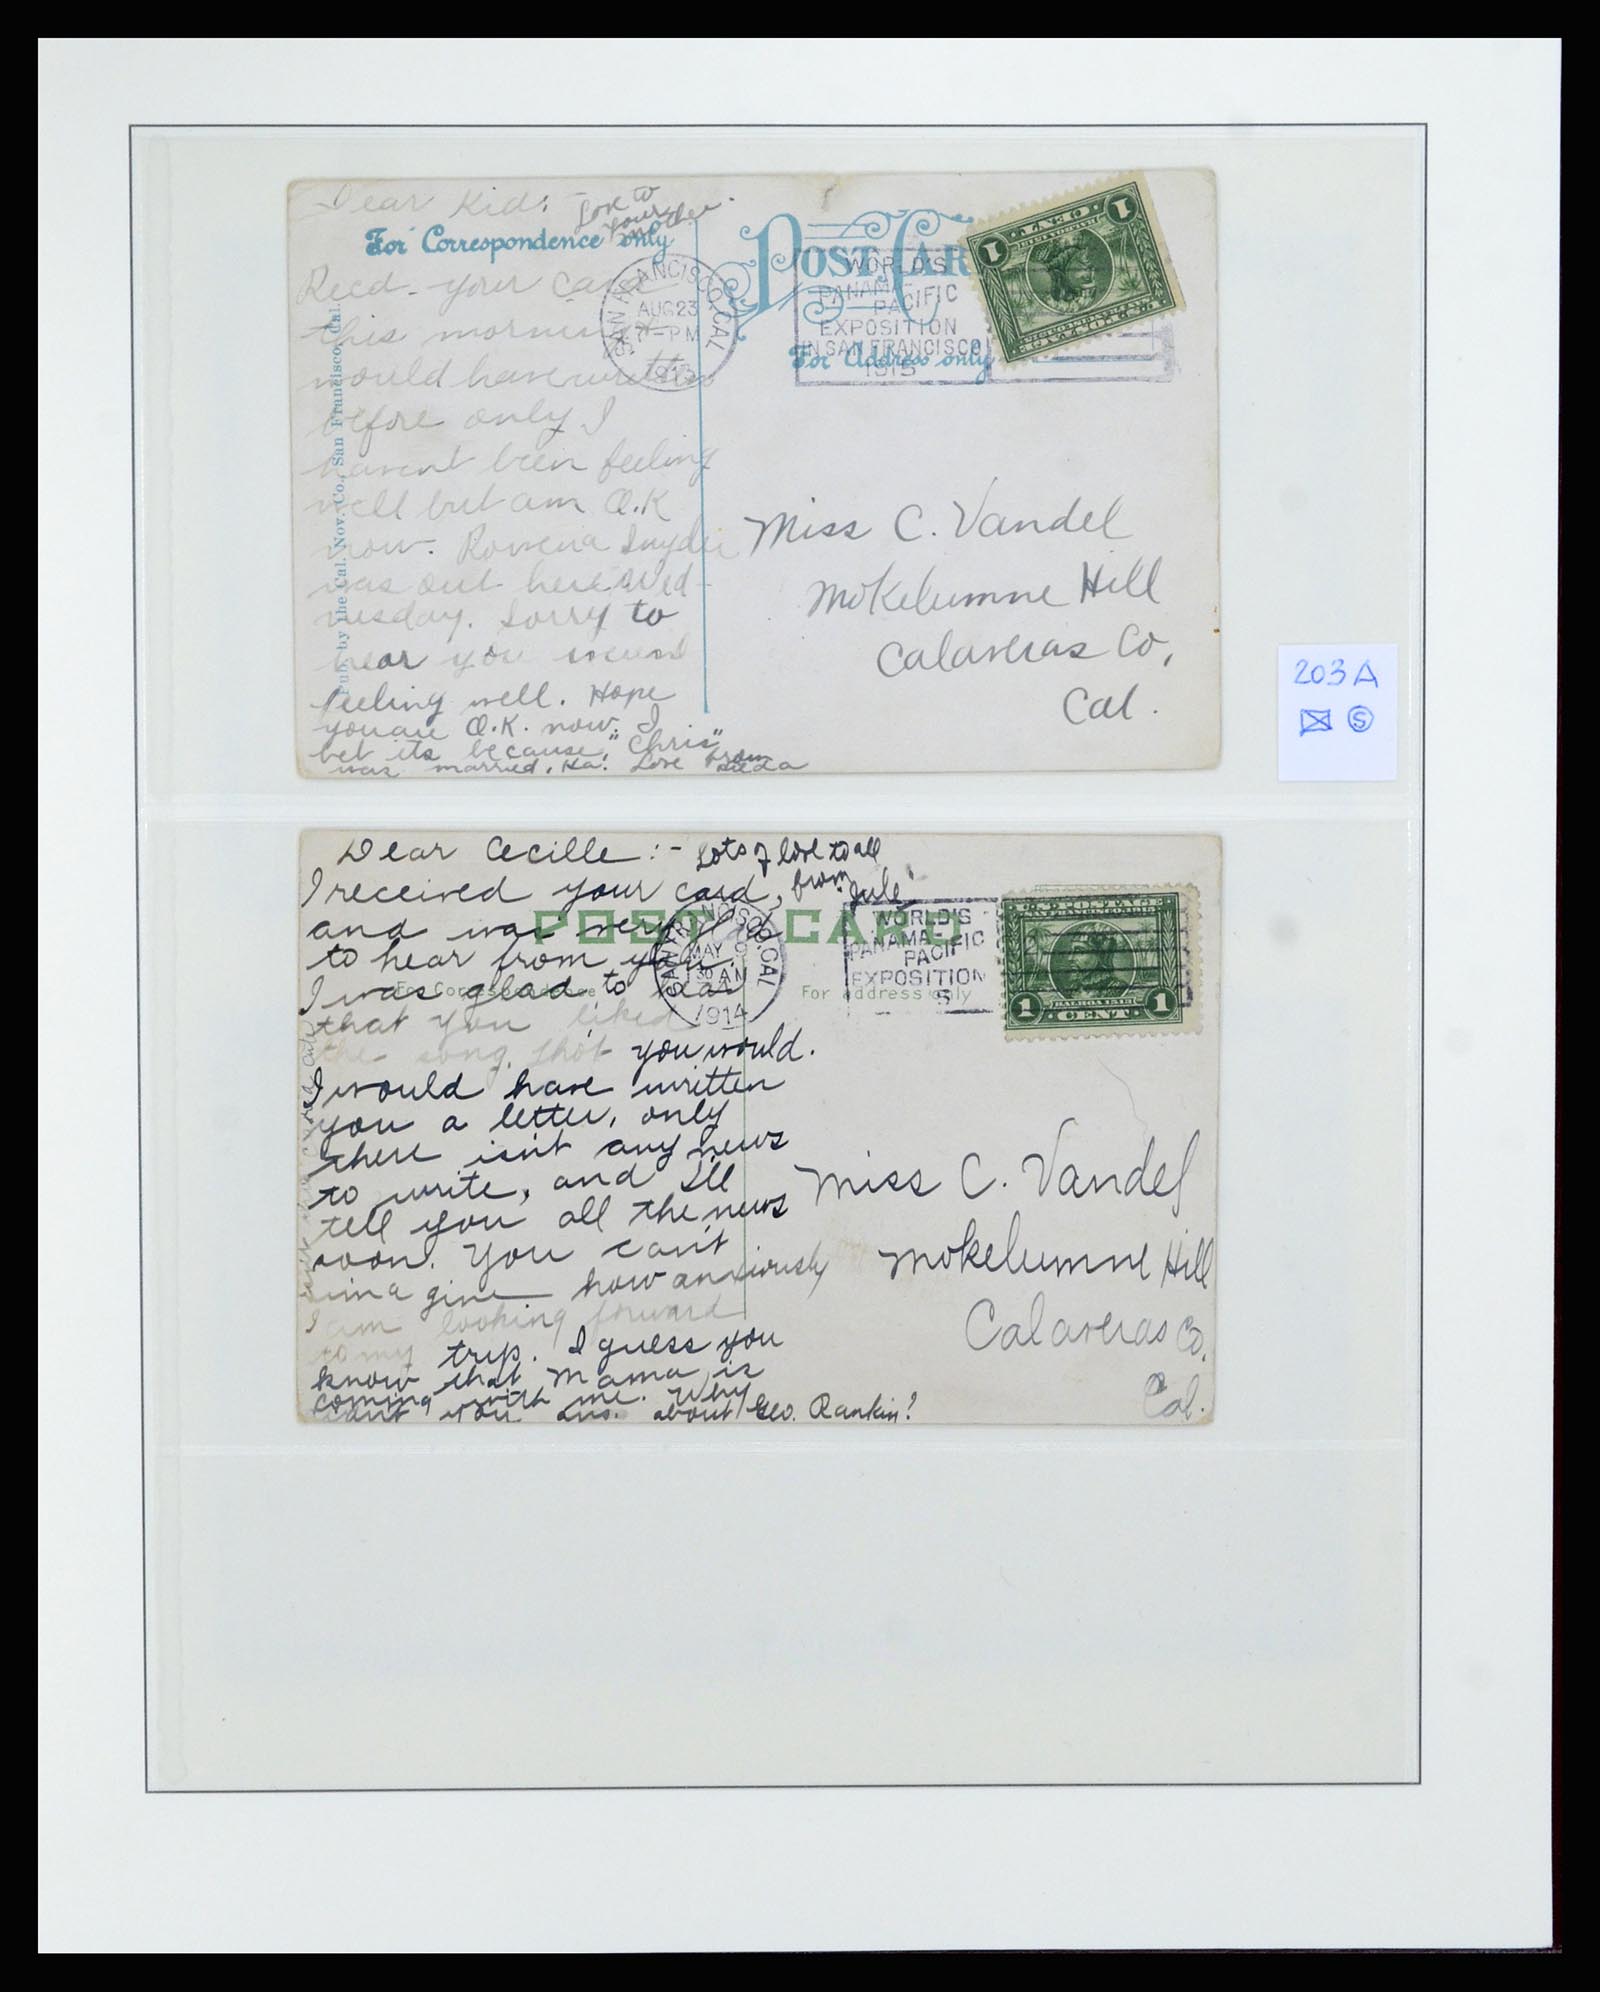 Dear Kid: -
Love to
your
mother.
For Correspondence only
POST CAR
Recd. your card
this morning
would have written
before only I
havent been feeling
well but am O.K
now. Rowena Snyder
was out here Wed-
nesday. Sorry to
hear you werent
feeling well. Hope
you are O.K. now. I
bet its because "Chris"
was married. Ha! Love from
Pub. by the Cal. Nov. Co., San Francisco, Cal.
SAN FRANCISCO, CAL
AUG 23
7-PM
1913
WORLD'S
PANAMA-
PACIFIC
EXPOSITION
IN SAN FRANCISCO
1915
For Address only
1 CENT 1
Miss C. Vandel
Mokelumne Hill
Calaveras Co,
Cal.
203A
S
Dear Cecille: - Lots of love to all
from "Jule"
I received your card,
and was very glad
to hear from you.
I was glad to hear
that you liked
the song. Thot you would.
I would have written
you a letter, only
there isn't any news
to write, and I'll
tell you all the news
soon. You can't
imagine how anxiously
I am looking forward
to my trip. I guess you
know that Mama is
coming with me. Why
cant you ans. about Geo. Rankin?
POST CARD
For Correspondence
For address only
SAN FRANCISCO, CAL
MAY 9
30 AM
1914
WORLD'S
PANAMA-
PACIFIC
EXPOSITION
U.S. POSTAGE
BALBOA 1513
1 CENT 1
Miss C. Vandel
Mokelumne Hill
Calaveras Co.
Cal.